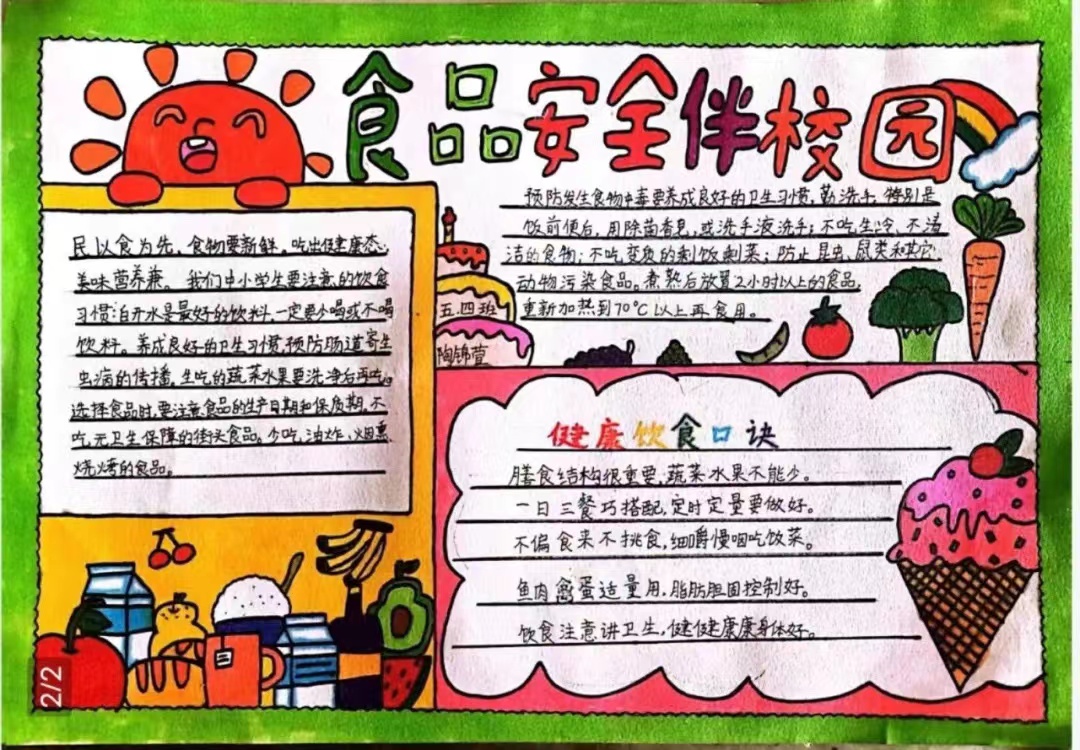 食品安全伴校园
民以食为先，食物要新鲜。吃出健康态，
美味营养兼。我们中小学生要注意的饮食
习惯：白开水是最好的饮料，一定要少喝或不喝
饮料。养成良好的卫生习惯，预防肠道寄生
虫病的传播。生吃的蔬菜水果要洗净后再吃。
选择食品时，要注意食品的生产日期和保质期，不
吃，无卫生保障的街头食品。少吃，油炸、烟熏、
烧烤的食品。
预防发生食物中毒要养成良好的卫生习惯，勤洗手，特别是
饭前便后，用除菌香皂，或洗手液洗手；不吃生冷、不清
洁的食物；不吃变质的剩饭剩菜；防止昆虫、鼠类和其它
动物污染食品。煮熟后放置2小时以上的食品，
重新加热到70°C以上再食用。
五.四班
陶锦萱
健康饮食口诀
膳食结构很重要，蔬菜水果不能少。
一日三餐巧搭配，定时定量要做好。
不偏食来不挑食，细嚼慢咽吃饭菜。
鱼肉禽蛋适量用，脂肪胆固控制好。
饮食注意讲卫生，健健康康身体好。
2/2